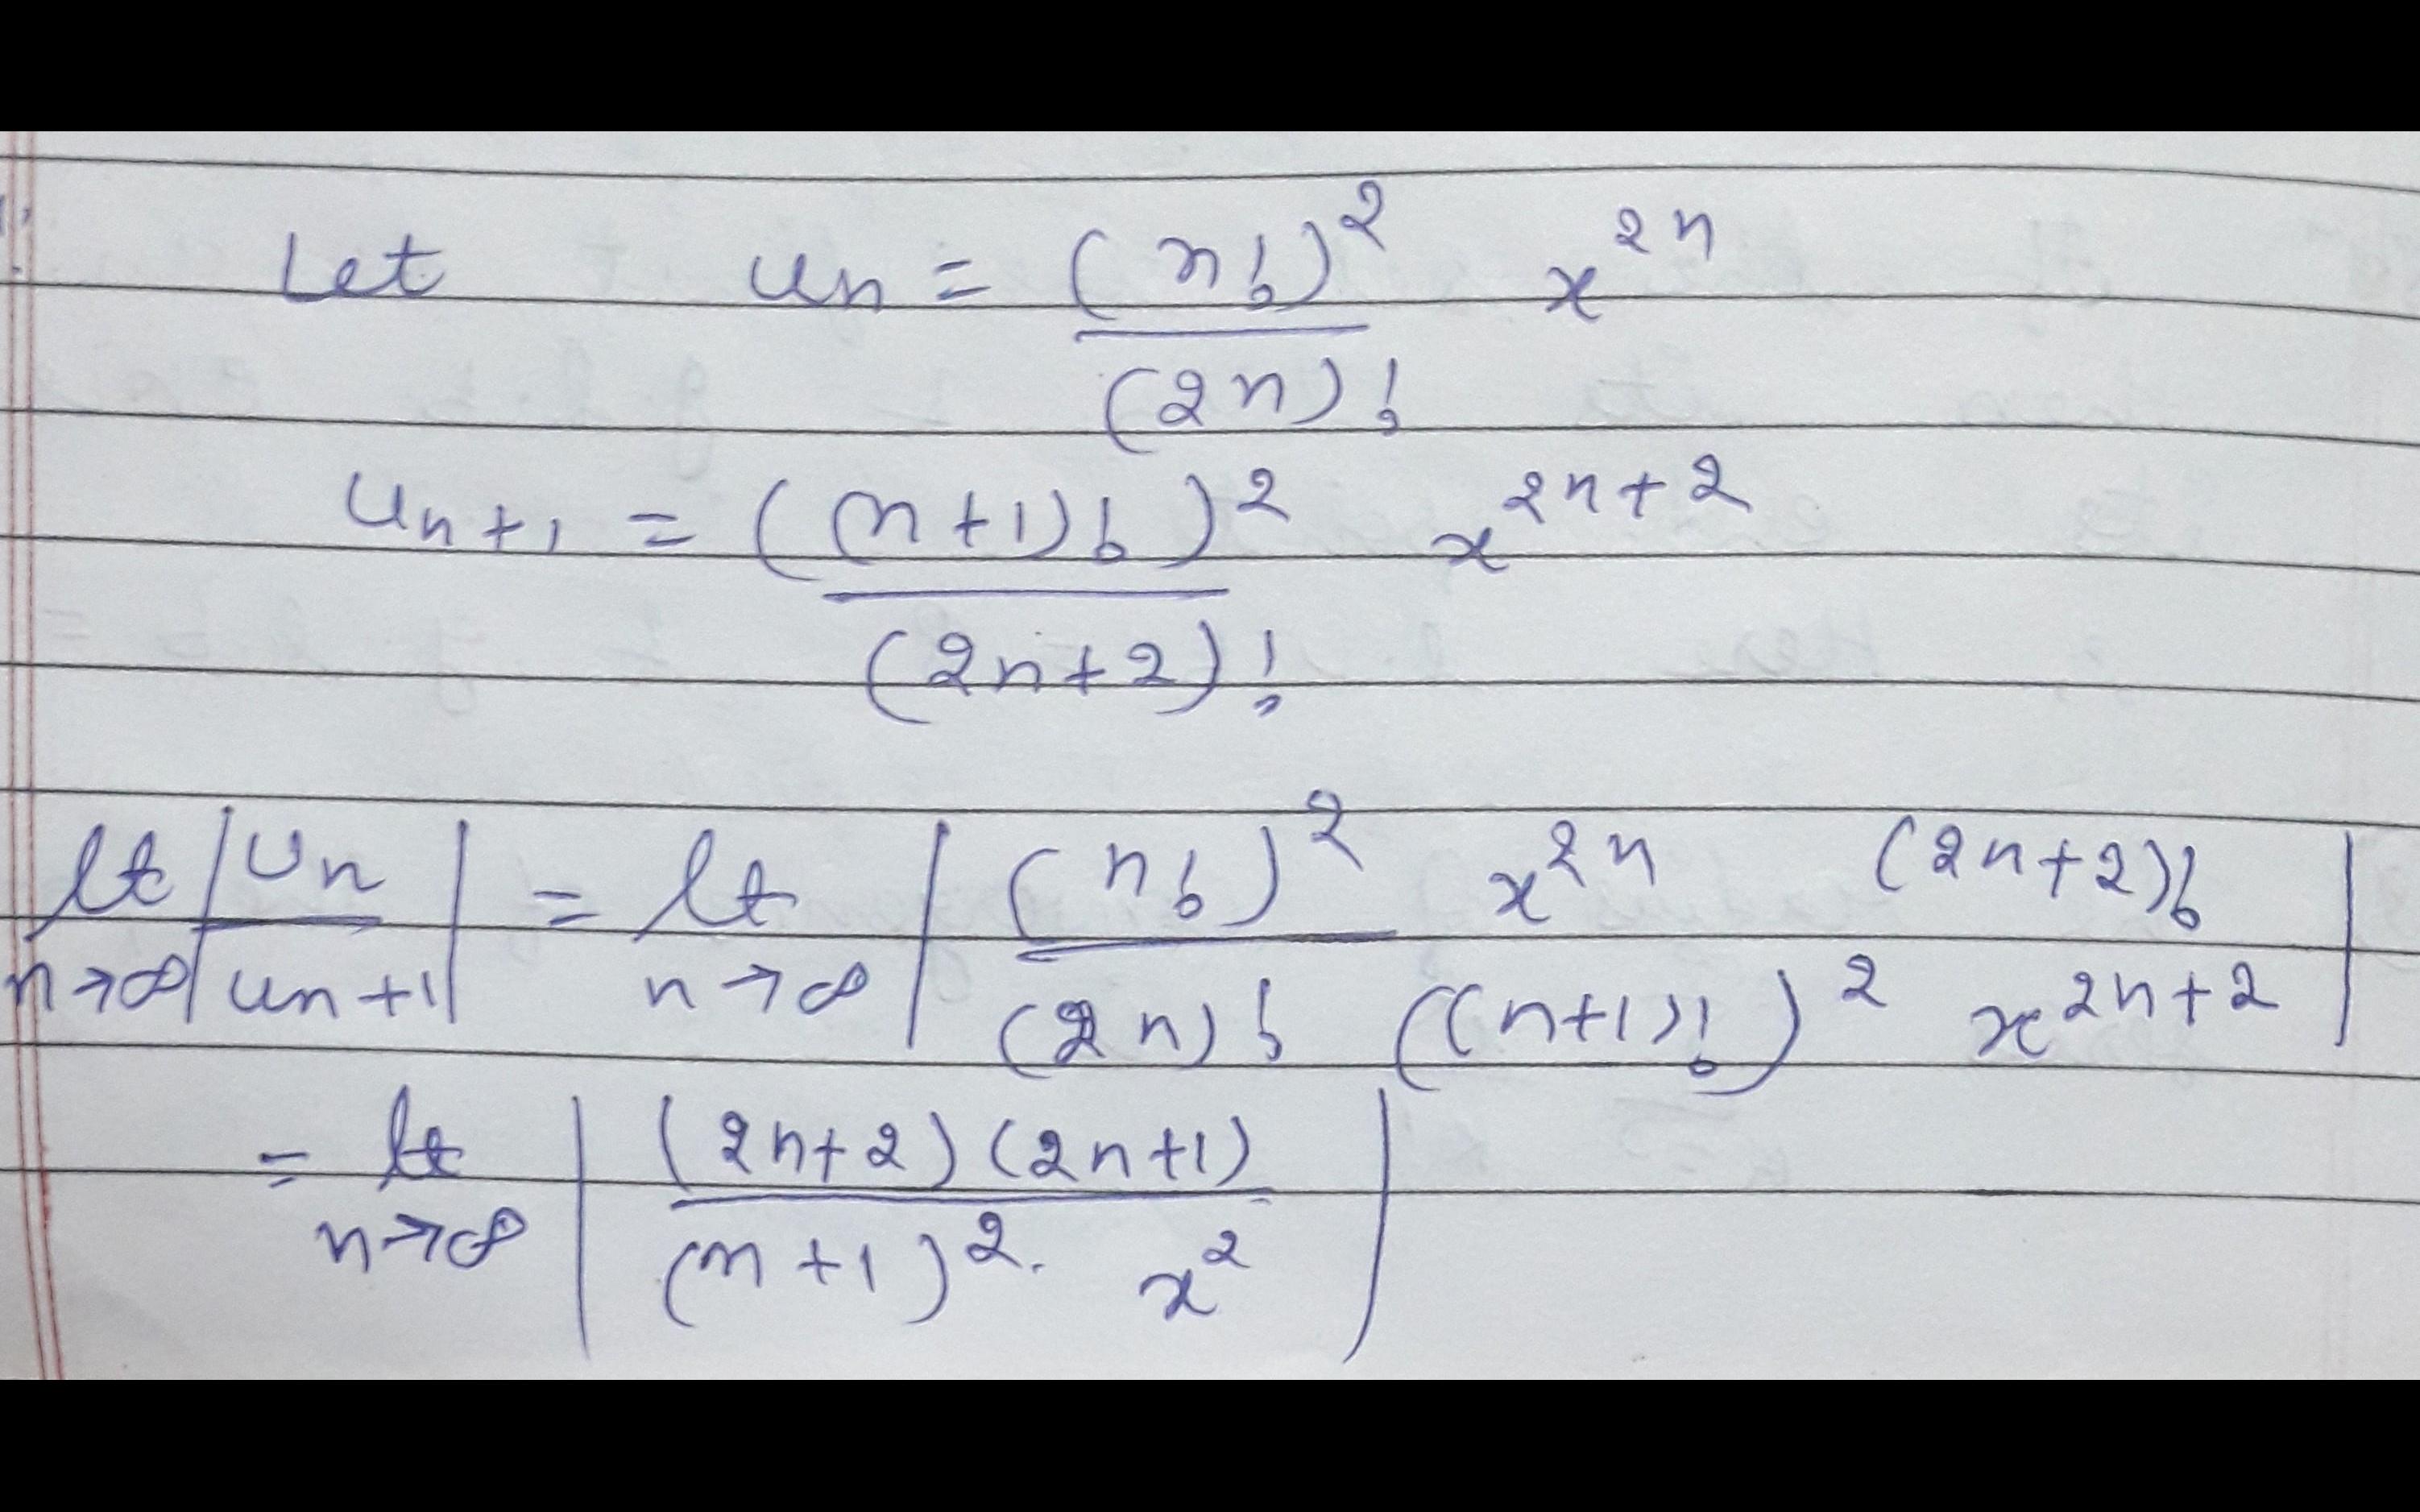 Let u_n = (n!)^2 / (2n)! x^{2n}
u_{n+1} = ((n+1)!)^2 / (2n+2)! x^{2n+2}
lt n→∞ |u_n / u_{n+1}| = lt n→∞ | (n!)^2 / (2n)! x^{2n} (2n+2)! / ((n+1)!)^2 x^{2n+2} |
= lt n→∞ | (2n+2)(2n+1) / (n+1)^2 . x^2 |